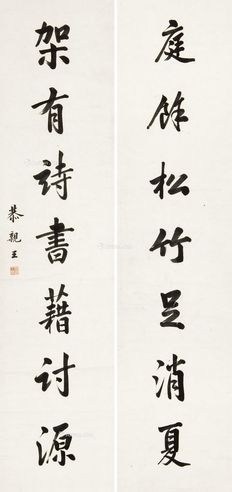 庭餘松竹足消夏
架有詩書藉討源
恭親王